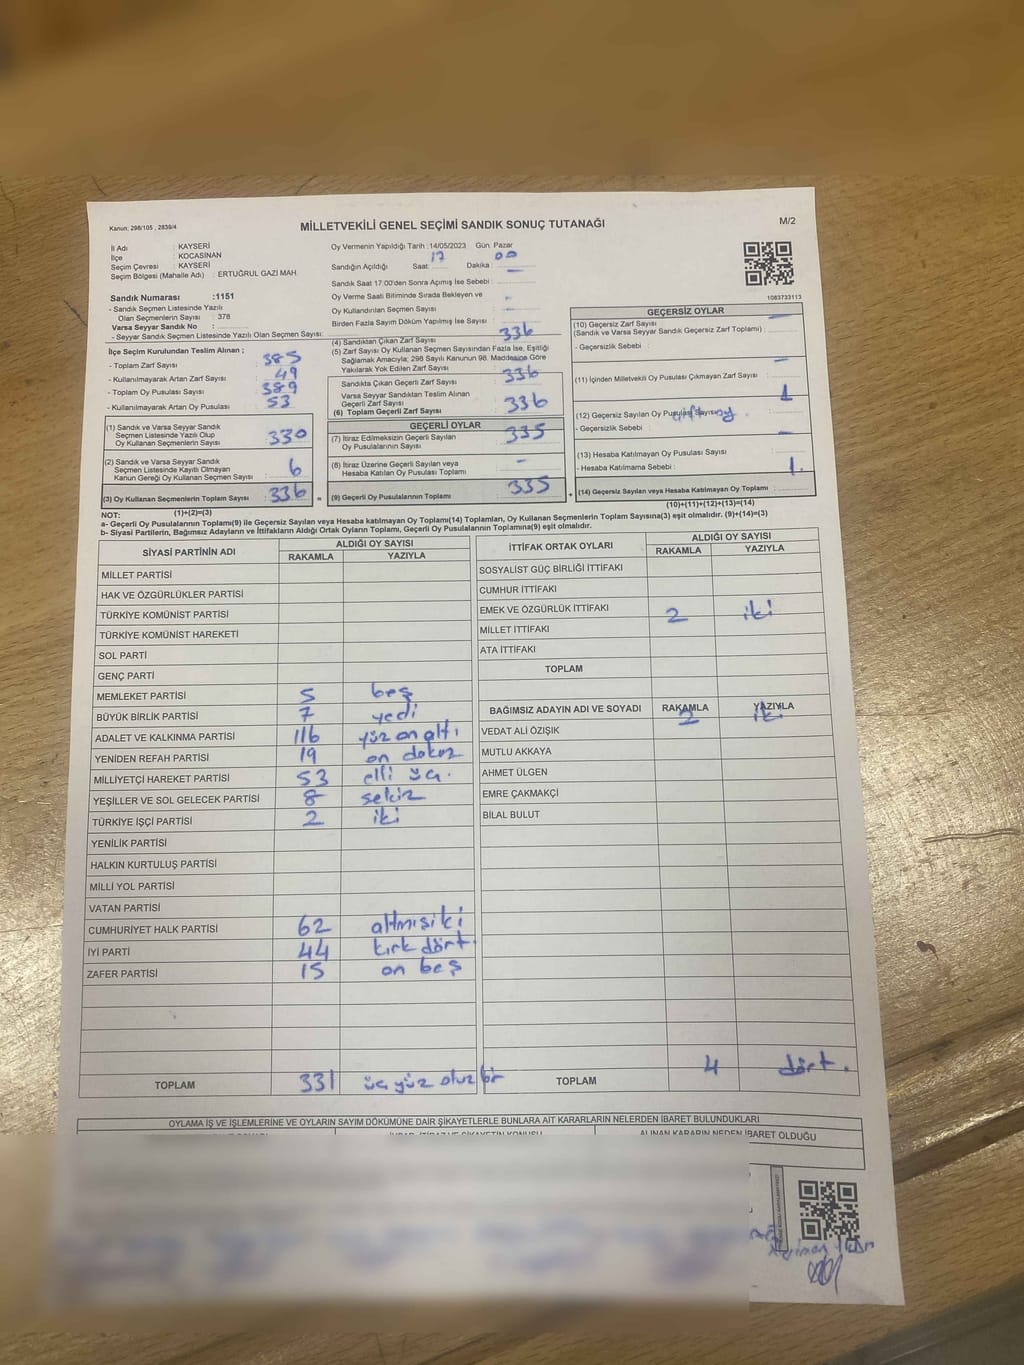 Kanun; 298/105 , 2839/4
MİLLETVEKİLİ GENEL SEÇİMİ SANDIK SONUÇ TUTANAĞI
M/2
İl Adı : KAYSERİ
İlçe : KOCASİNAN
Seçim Çevresi : KAYSERİ
Seçim Bölgesi (Mahalle Adı) : ERTUĞRUL GAZİ MAH.
Sandık Numarası :1151
- Sandık Seçmen Listesinde Yazılı
Olan Seçmenlerin Sayısı : 378
Varsa Seyyar Sandık No :
- Seyyar Sandık Seçmen Listesinde Yazılı Olan Seçmen Sayısı:
Oy Vermenin Yapıldığı Tarih :14/05/2023 Gün Pazar
Sandığın Açıldığı Saat: 17 Dakika 00
Sandık Saat 17:00'den Sonra Açımış İse Sebebi : —
Oy Verme Saati Bitiminde Sırada Bekleyen ve
Oy Kullandırılan Seçmen Sayısı : -
Birden Fazla Sayım Döküm Yapılmış İse Sayısı : -
1083733113
İlçe Seçim Kurulundan Teslim Alınan ;
- Toplam Zarf Sayısı : 385
- Kullanılmayarak Artan Zarf Sayısı : 49
- Toplam Oy Pusulası Sayısı : 389
- Kullanılmayarak Artan Oy Pusulası : 53
(1) Sandık ve Varsa Seyyar Sandık
Seçmen Listesinde Yazılı Olup
Oy Kullanan Seçmenlerin Sayısı : 330
(2) Sandık ve Varsa Seyyar Sandık
Seçmen Listesinde Kayıtlı Olmayan
Kanun Gereği Oy Kullanan Seçmen Sayısı : 6
(3) Oy Kullanan Seçmenlerin Toplam Sayısı : 336 =
(1)+(2)=(3)
(4) Sandıktan Çıkan Zarf Sayısı : 336
(5) Zarf Sayısı Oy Kullanan Seçmen Sayısından Fazla İse, Eşitliği
Sağlamak Amacıyla; 298 Sayılı Kanunun 98. Maddesine Göre
Yakılarak Yok Edilen Zarf Sayısı :
Sandıkta Çıkan Geçerli Zarf Sayısı : 336
Varsa Seyyar Sandıktan Teslim Alınan
Geçerli Zarf Sayısı :
(6) Toplam Geçerli Zarf Sayısı : 336
GEÇERLİ OYLAR
(7) İtiraz Edilmeksizin Geçerli Sayılan
Oy Pusulalarının Sayısı : 335
(8) İtiraz Üzerine Geçerli Sayılan veya
Hesaba Katılan Oy Pusulası Toplamı : -
(9) Geçerli Oy Pusulalarının Toplamı : 335 +
GEÇERSİZ OYLAR
(10) Geçersiz Zarf Sayısı
(Sandık ve Varsa Seyyar Sandık Geçersiz Zarf Toplamı) : —
- Geçersizlik Sebebi :
(11) İçinden Milletvekili Oy Pusulası Çıkmayan Zarf Sayısı : —
(12) Geçersiz Sayılan Oy Pusulası Sayısı : 1
- Geçersizlik Sebebi :
(13) Hesaba Katılmayan Oy Pusulası Sayısı : —
- Hesaba Katılmama Sebebi :
(14) Geçersiz Sayılan veya Hesaba Katılmayan Oy Toplamı : 1.
(10)+(11)+(12)+(13)=(14)
NOT:
a- Geçerli Oy Pusulalarının Toplamı(9) ile Geçersiz Sayılan veya Hesaba katılmayan Oy Toplamı(14) Toplamları, Oy Kullanan Seçmenlerin Toplam Sayısına(3) eşit olmalıdır. (9)+(14)=(3)
b- Siyasi Partilerin, Bağımsız Adayların ve İttifakların Aldığı Ortak Oyların Toplamı, Geçerli Oy Pusulalarının Toplamına(9) eşit olmalıdır.
SİYASİ PARTİNİN ADI ALDIĞI OY SAYISI
RAKAMLA YAZIYLA
MİLLET PARTİSİ
HAK VE ÖZGÜRLÜKLER PARTİSİ
TÜRKİYE KOMÜNİST PARTİSİ
TÜRKİYE KOMÜNİST HAREKETİ
SOL PARTİ
GENÇ PARTİ
MEMLEKET PARTİSİ 5 beş
BÜYÜK BİRLİK PARTİSİ 7 yedi
ADALET VE KALKINMA PARTİSİ 116 yüz on altı
YENİDEN REFAH PARTİSİ 19 on dokuz
MİLLİYETÇİ HAREKET PARTİSİ 53 elli üç.
YEŞİLLER VE SOL GELECEK PARTİSİ 8 sekiz
TÜRKİYE İŞÇİ PARTİSİ 2 iki
YENİLİK PARTİSİ
HALKIN KURTULUŞ PARTİSİ
MİLLİ YOL PARTİSİ
VATAN PARTİSİ
CUMHURİYET HALK PARTİSİ 62 altmışiki
İYİ PARTİ 44 kırk dört.
ZAFER PARTİSİ 15 on beş
TOPLAM 331 üç yüz otuz bir
İTTİFAK ORTAK OYLARI ALDIĞI OY SAYISI
RAKAMLA YAZIYLA
SOSYALİST GÜÇ BİRLİĞİ İTTİFAKI
CUMHUR İTTİFAKI
EMEK VE ÖZGÜRLÜK İTTİFAKI 2 iki
MİLLET İTTİFAKI
ATA İTTİFAKI
TOPLAM
BAĞIMSIZ ADAYIN ADI VE SOYADI RAKAMLA YAZIYLA
2 iki
VEDAT ALİ ÖZIŞIK
MUTLU AKKAYA
AHMET ÜLGEN
EMRE ÇAKMAKÇİ
BİLAL BULUT
TOPLAM 4 dört.
OYLAMA İŞ VE İŞLEMLERİNE VE OYLARIN SAYIM DÖKÜMÜNE DAİR ŞİKAYETLERLE BUNLARA AİT KARARLARIN NELERDEN İBARET BULUNDUKLARI
ALINAN KARARIN NEDEN İBARET OLDUĞU